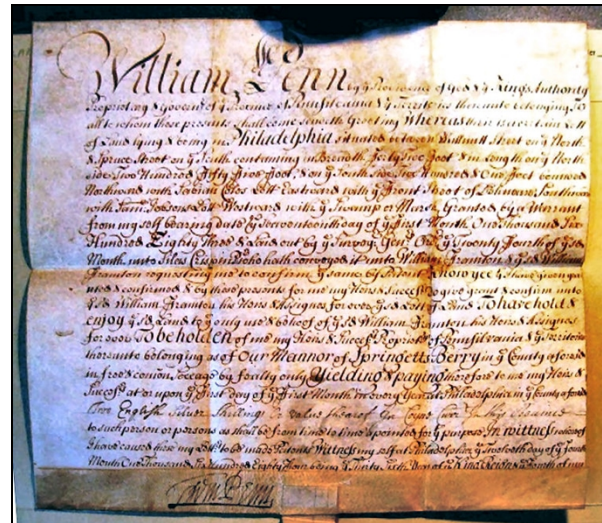 William Penn by yᵉ Providence of God & yᵉ Kings Authority
Proprietary & Governour of yᵉ Province of Pennsilvania & yᵉ Territories thereunto belonging To
all to whom these presents shall come sendeth Greeting Whereas there is a certain Lott
of Land lying & being in Philadelphia situated between Wallnutt Street on yᵉ North
& Spruce Street on yᵉ South containing in Breadth Forty two foot & in Length on yᵉ North
side Two Hundred Fifty Five foot, & on yᵉ South side Two Hundred & One foot bounded
Northward with Lott Eastward with yᵉ Front Street of Delaware, Southward
with Lott Westward with yᵉ Swamp or Marsh Granted by a Warrant
from my self bearing date yᵉ Seventeenth day of yᵉ First Month One Thousand Six
Hundred Eighty Three & laid out by yᵉ Survey. Genˡ. Ordʳ yᵉ Twenty Fourth of yᵉ sᵈ
Month unto Silas Crispin who hath conveyed it unto William Framton & yᵉ sᵈ William
Framton requesting me to confirm yᵉ same by Patent Know yee yᵗ I have given gran
ted & confirmed & by these presents for me my Heires & Successʳˢ do give grant & confirm unto
yᵉ sᵈ William Framton his Heires & Assignes for ever yᵉ sᵈ Lott of Land To have hold &
enjoy yᵉ sᵈ Land to yᵉ only use & behoof of yᵉ sᵈ William Framton his Heires & Assignes
for ever To be holden of me my Heires & Successʳˢ Propriet of Pennsilvania & yᵉ Territories
thereunto belonging as of Our Mannor of Springetts Berry in yᵉ County aforesaid
in free & comon Soccage by fealty only Yielding & paying therefore to me my Heires &
Successʳˢ at or upon yᵉ First day of yᵉ First Month in every Year at Philadelphia in yᵉ County aforesᵈ
English Silver Shillings or value thereof in Coyne
to such person or persons as shall be from time to time apointed for yᵗ purpose In wittness whereof
I have caused these my Lettʳˢ to be made Patents Wittness my self at Philadelphia yᵉ Twentieth day of yᵉ
Month One Thousand Six Hundred Eighty Four being yᵉ Thirty Sixth Year of yᵉ King Reign & yᵉ Fourth of mine
Wm Penn